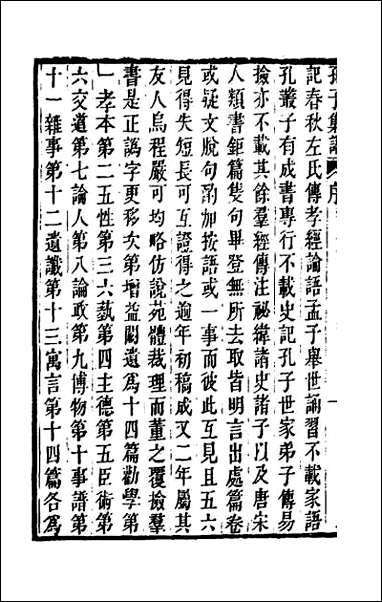 孔子集語 序
記春秋左氏傳孝經論語孟子舉世誦習不載家語
孔叢子有成書專行不載史記孔子世家弟子傳易
撿亦不載其餘羣經傳注祕緯諸史諸子以及唐宋
人類書鉅篇隻句畢登無所去取皆明言出處篇卷
或疑文脫句酌加按語或一事而彼此互見且五六
見得失短長可互證得之逾年初稿成又二年屬其
友人烏程嚴可均略仿說苑體裁理而董之覆撿羣
書是正譌字更移次第增益闕遺為十四篇勸學第
一孝本第二五性第三六藝第四主德第五臣術第
六交道第七論人第八論政第九博物第十事譜第
十一雜事第十二遺讖第十三寓言第十四篇各為